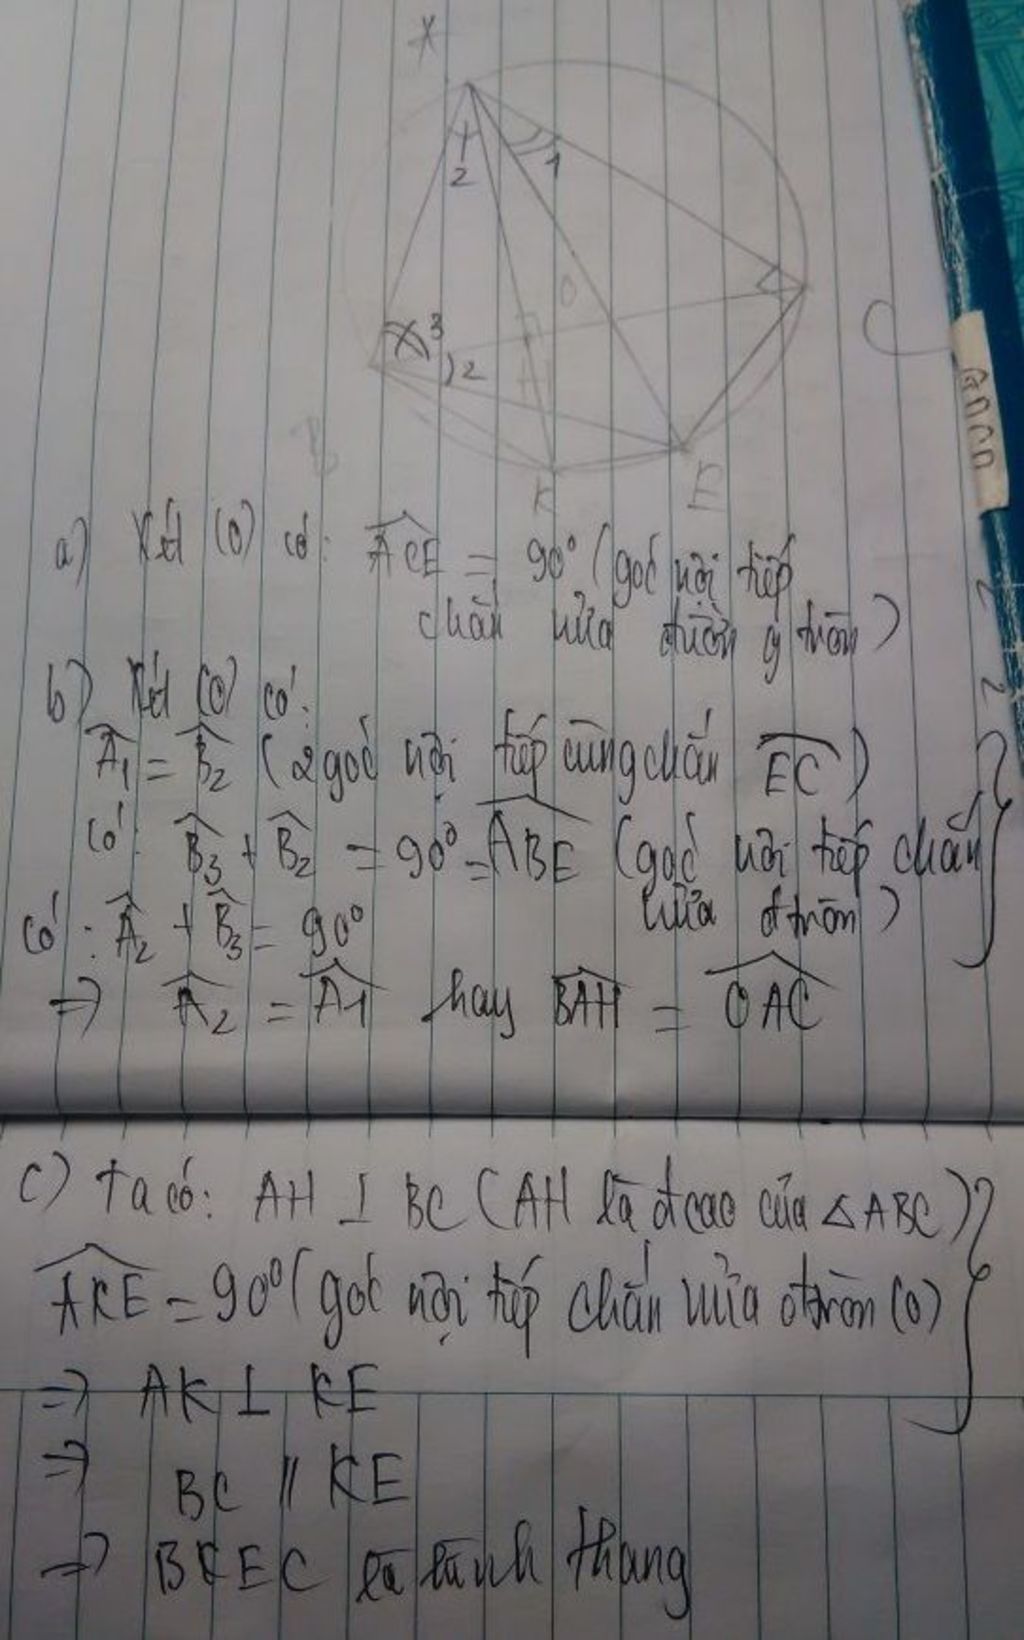 A
1
2
O
3
2
H
B
C
K
E
a) Xét (O) có: ACE = 90° (góc nội tiếp
chắn nửa đường tròn)
b) Xét (O) có:
A1 = B2 (2 góc nội tiếp cùng chắn EC)
Có: B3 + B2 = 90° = ABE (góc nội tiếp chắn
nửa đ tròn)
Có: A2 + B3 = 90°
=> A2 = A1 hay BAH = OAC
c) Ta có: AH ⊥ BC (AH là đ cao của △ABC)
AKE = 90° (góc nội tiếp chắn nửa đ tròn (O)
=> AK ⊥ KE
=> BC // KE
=> BKEC là hình thang